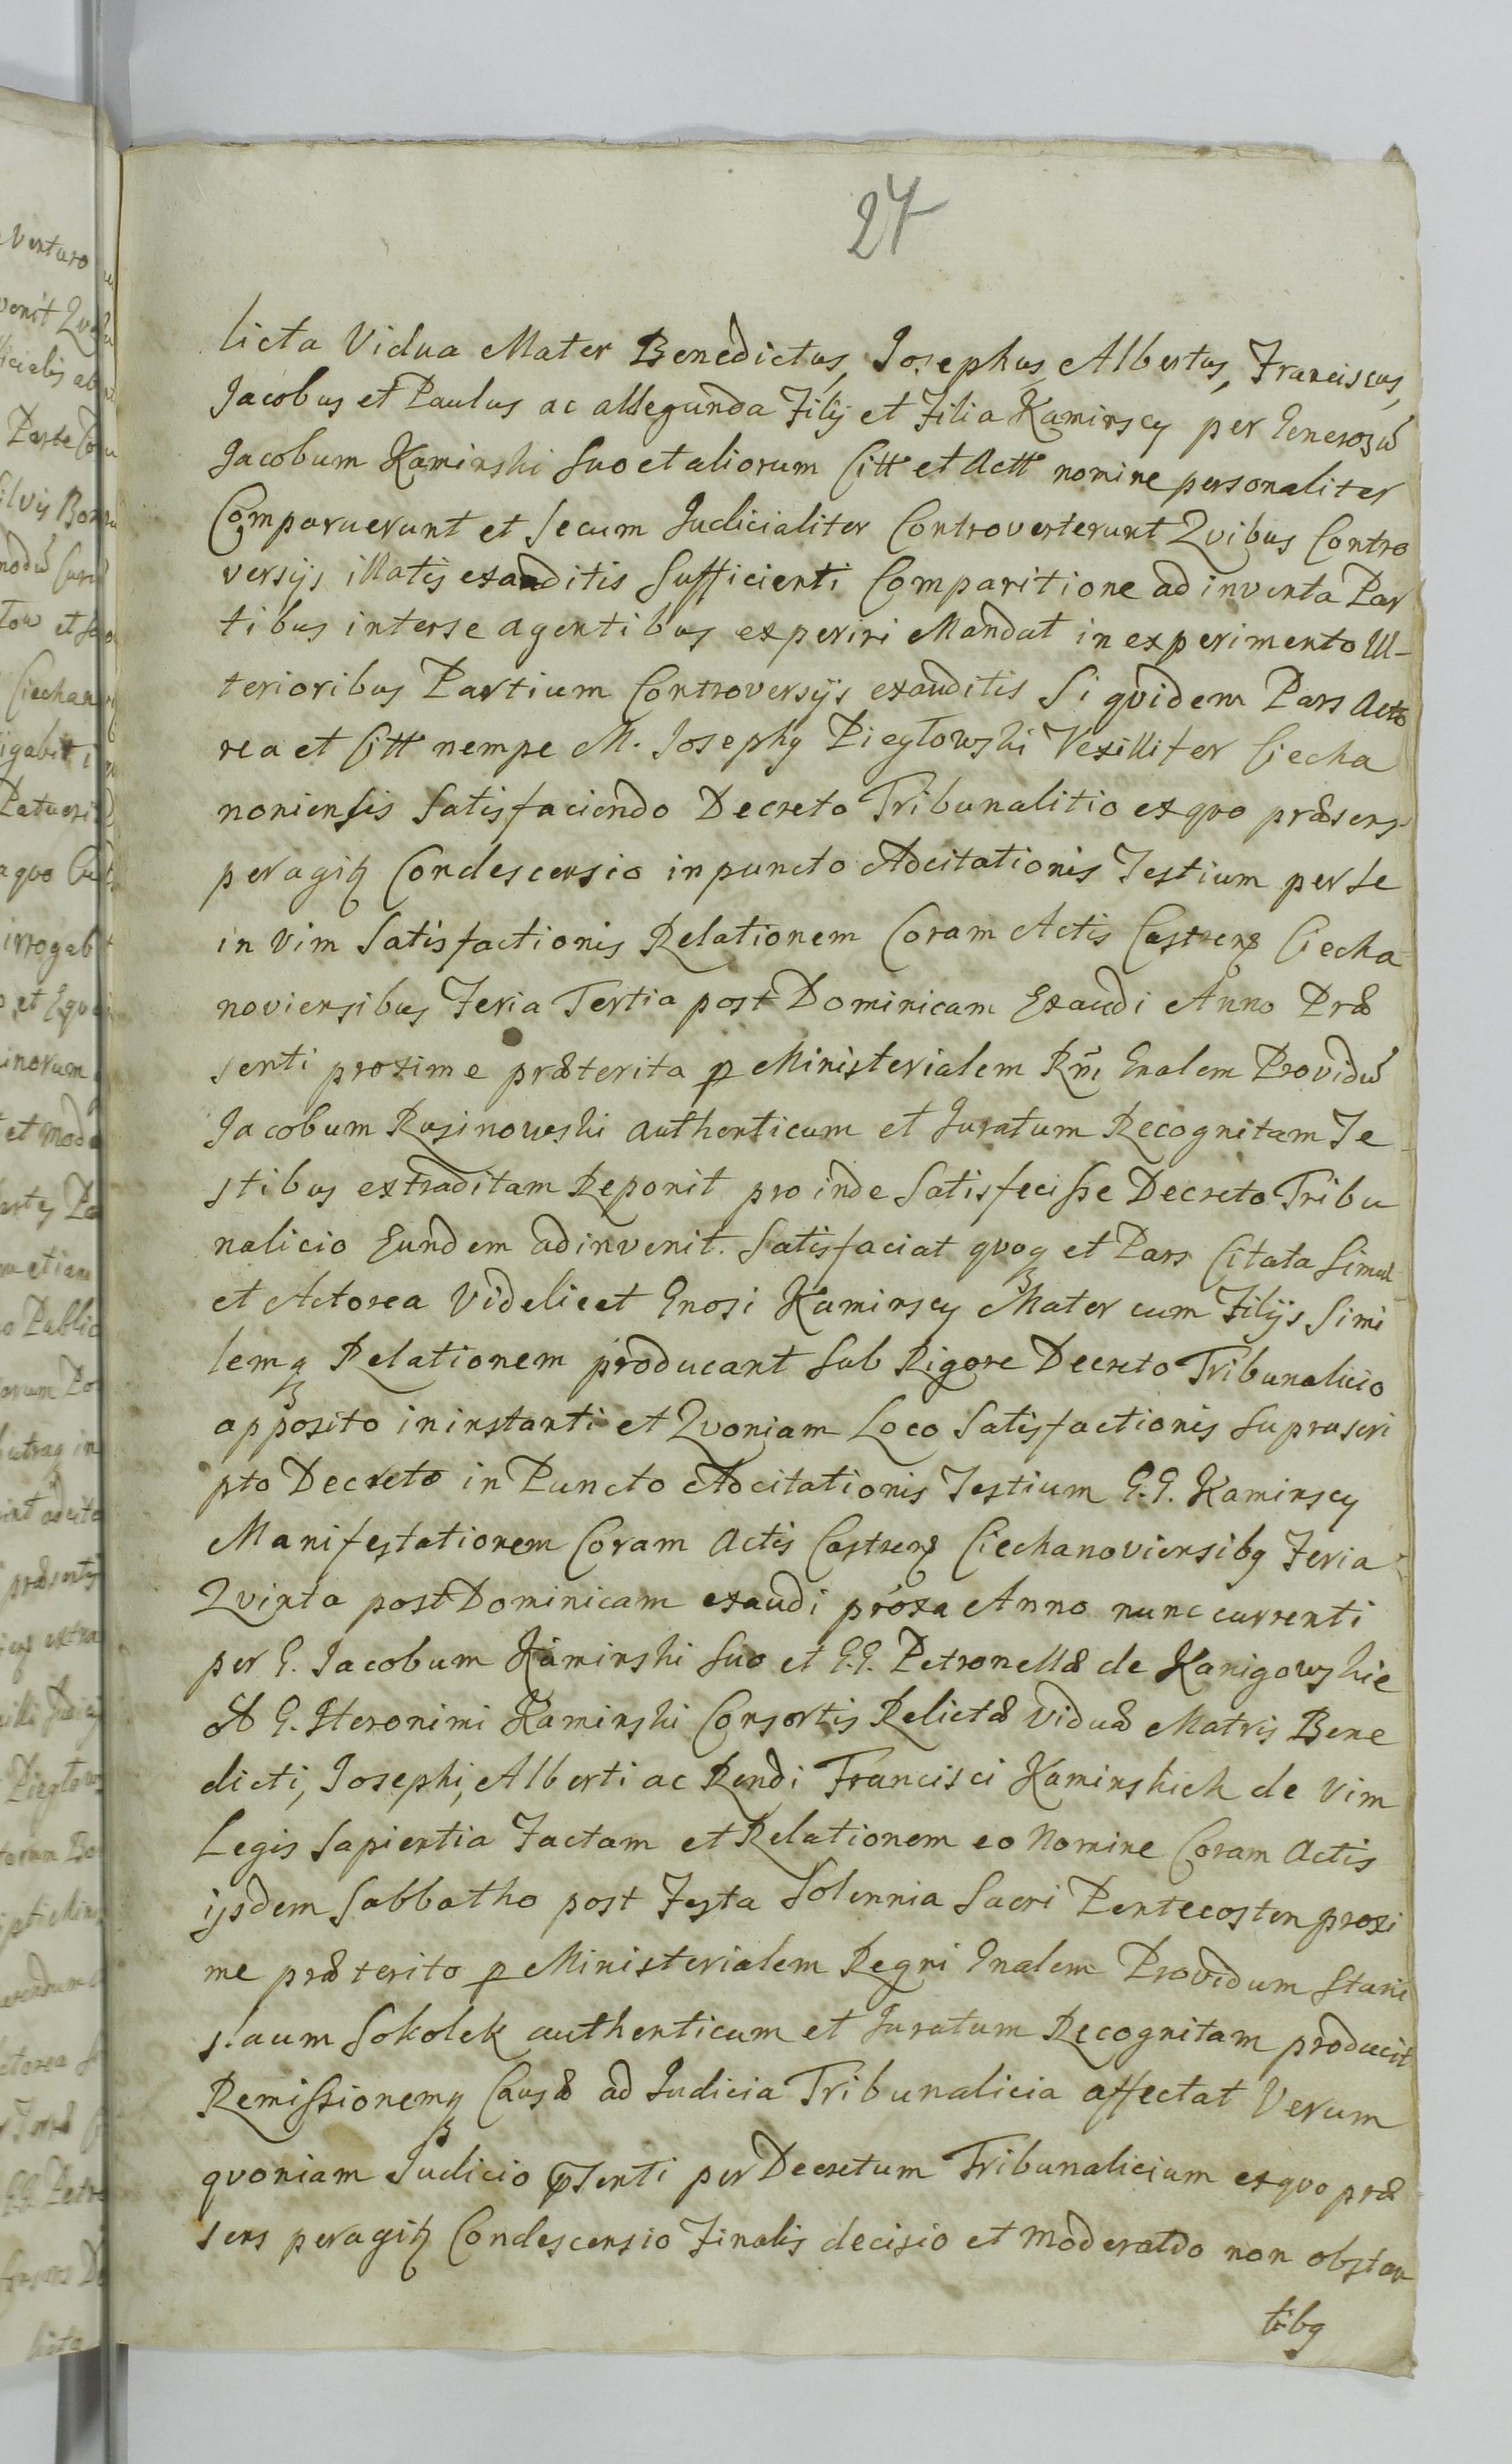 27
licta Vidua Mater Benedictus, Josephus, Albertus, Franciscus,
Jacobus et Paulus ac allegunda Filij et Filia Kaminscy per Generosũ
Jacobum Kaminski suo et aliorum Citt et Actt nomine personaliter
Comparuerunt et secum Judicialiter Controverterunt Qvibus Contro
versijs illatis exauditis sufficienti Comparitione adinventa Par
tibus interse agentibus experiri Mandat in experimento Ul-
terioribus Partium Controversijs exauditis Siqvidem Pars Acto
rea et Citt nempe M. Josephq Piegłowski Vexillifer Ciecha
noniensis satisfaciendo Decreto Tribunalitio exqvo præsens
peragitz Condescensio in puncto Adcitationis Testium per se
in vim Satisfactionis Relationem Coram Actis Castrens Ciecha
noviensibus Feria Tertia post Dominicam Exaudi Anno Præ
senti proxime præterita p Ministerialem Rñi Gnalem Providũ
Jacobum Rusinowski authenticum et Juratum Recognitam Te
stibus extraditam Reponit proinde Satisfecisse Decreto Tribu
nalicio Eundem adinvenit. Satisfaciat qvoq et Pars Citata Simul
et Actorea Videlicet Gnosi Kaminscy Mater cum Filijs Simi
lemq Relationem producant sub Rigore Decreto Tribunalicio
apposito in instanti et Qvoniam Loco Satisfactionis suprascri
pto Decreto in Puncto Adcitationis Testium G.G. Kaminscy
Manifestationem Coram Actis Castrens Ciechanoviensibq Feria
Qvinta post Dominicam exaudi próxa Anno nunc currenti
per G. Jacobum Kaminski suo et G.G. Petronellæ de Kanigowskie
G. Hieronimi Kaminski Consortis Relictæ Viduæ Matris Bene
dicti, Josephi, Alberti ac Rendi Francisci Kaminskich de vim
Legis sapientia Factam et Relationem eo Nomine Coram Actis
ijsdem Sabbatho post Festa Solennia Sacri Pentecosten proxi
me præterito p Ministerialem Regni Gnalem Providum Stani
slaum Sokolek authenticum et Juratum Recognitam producit
Remissionemq Causæ ad Judicia Tribunalicia affectat Verum
qvoniam Judicio pnsenti per Decretum Tribunalicium exqvo præ
sens peragitz Condescensio Finalis decisio et moderatio non obstan
tibq